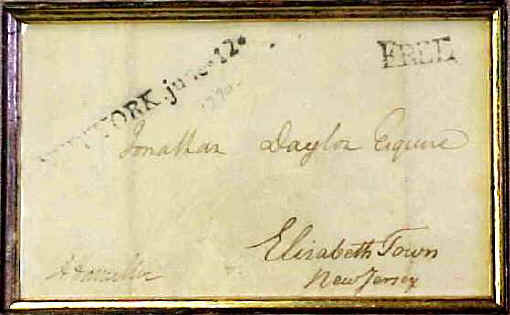 NEW YORK june * 12 *
FREE
Jonathan Dayton Esquire
Elisabeth Town
New Jersey